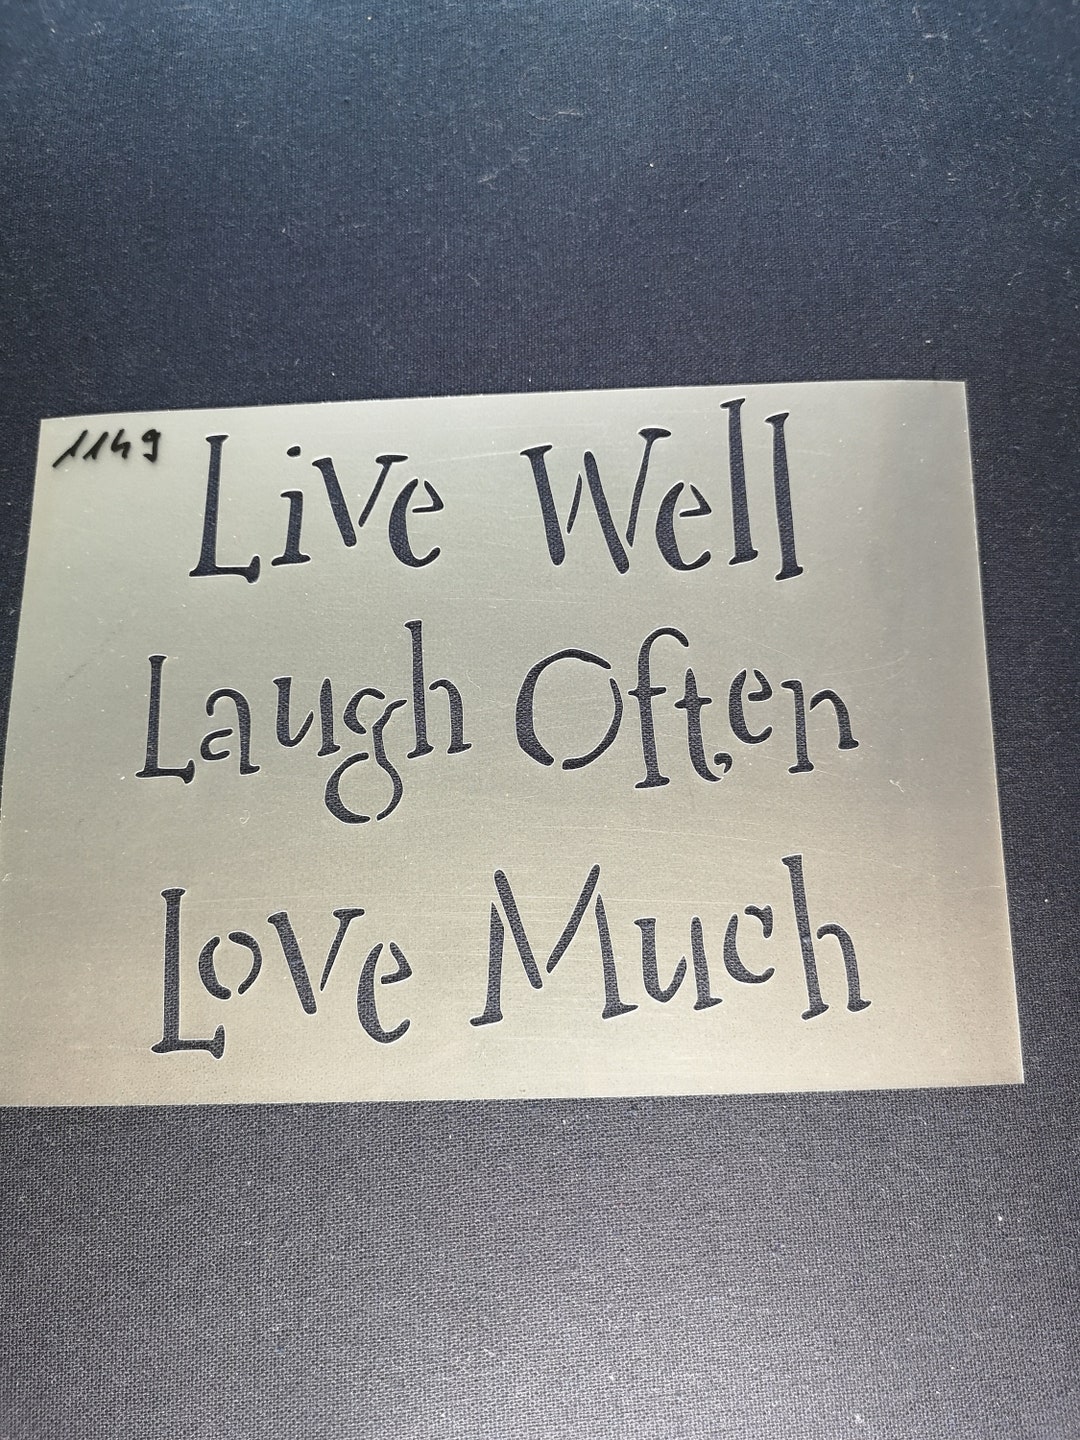 1149
Live Well
Laugh Often
Love Much